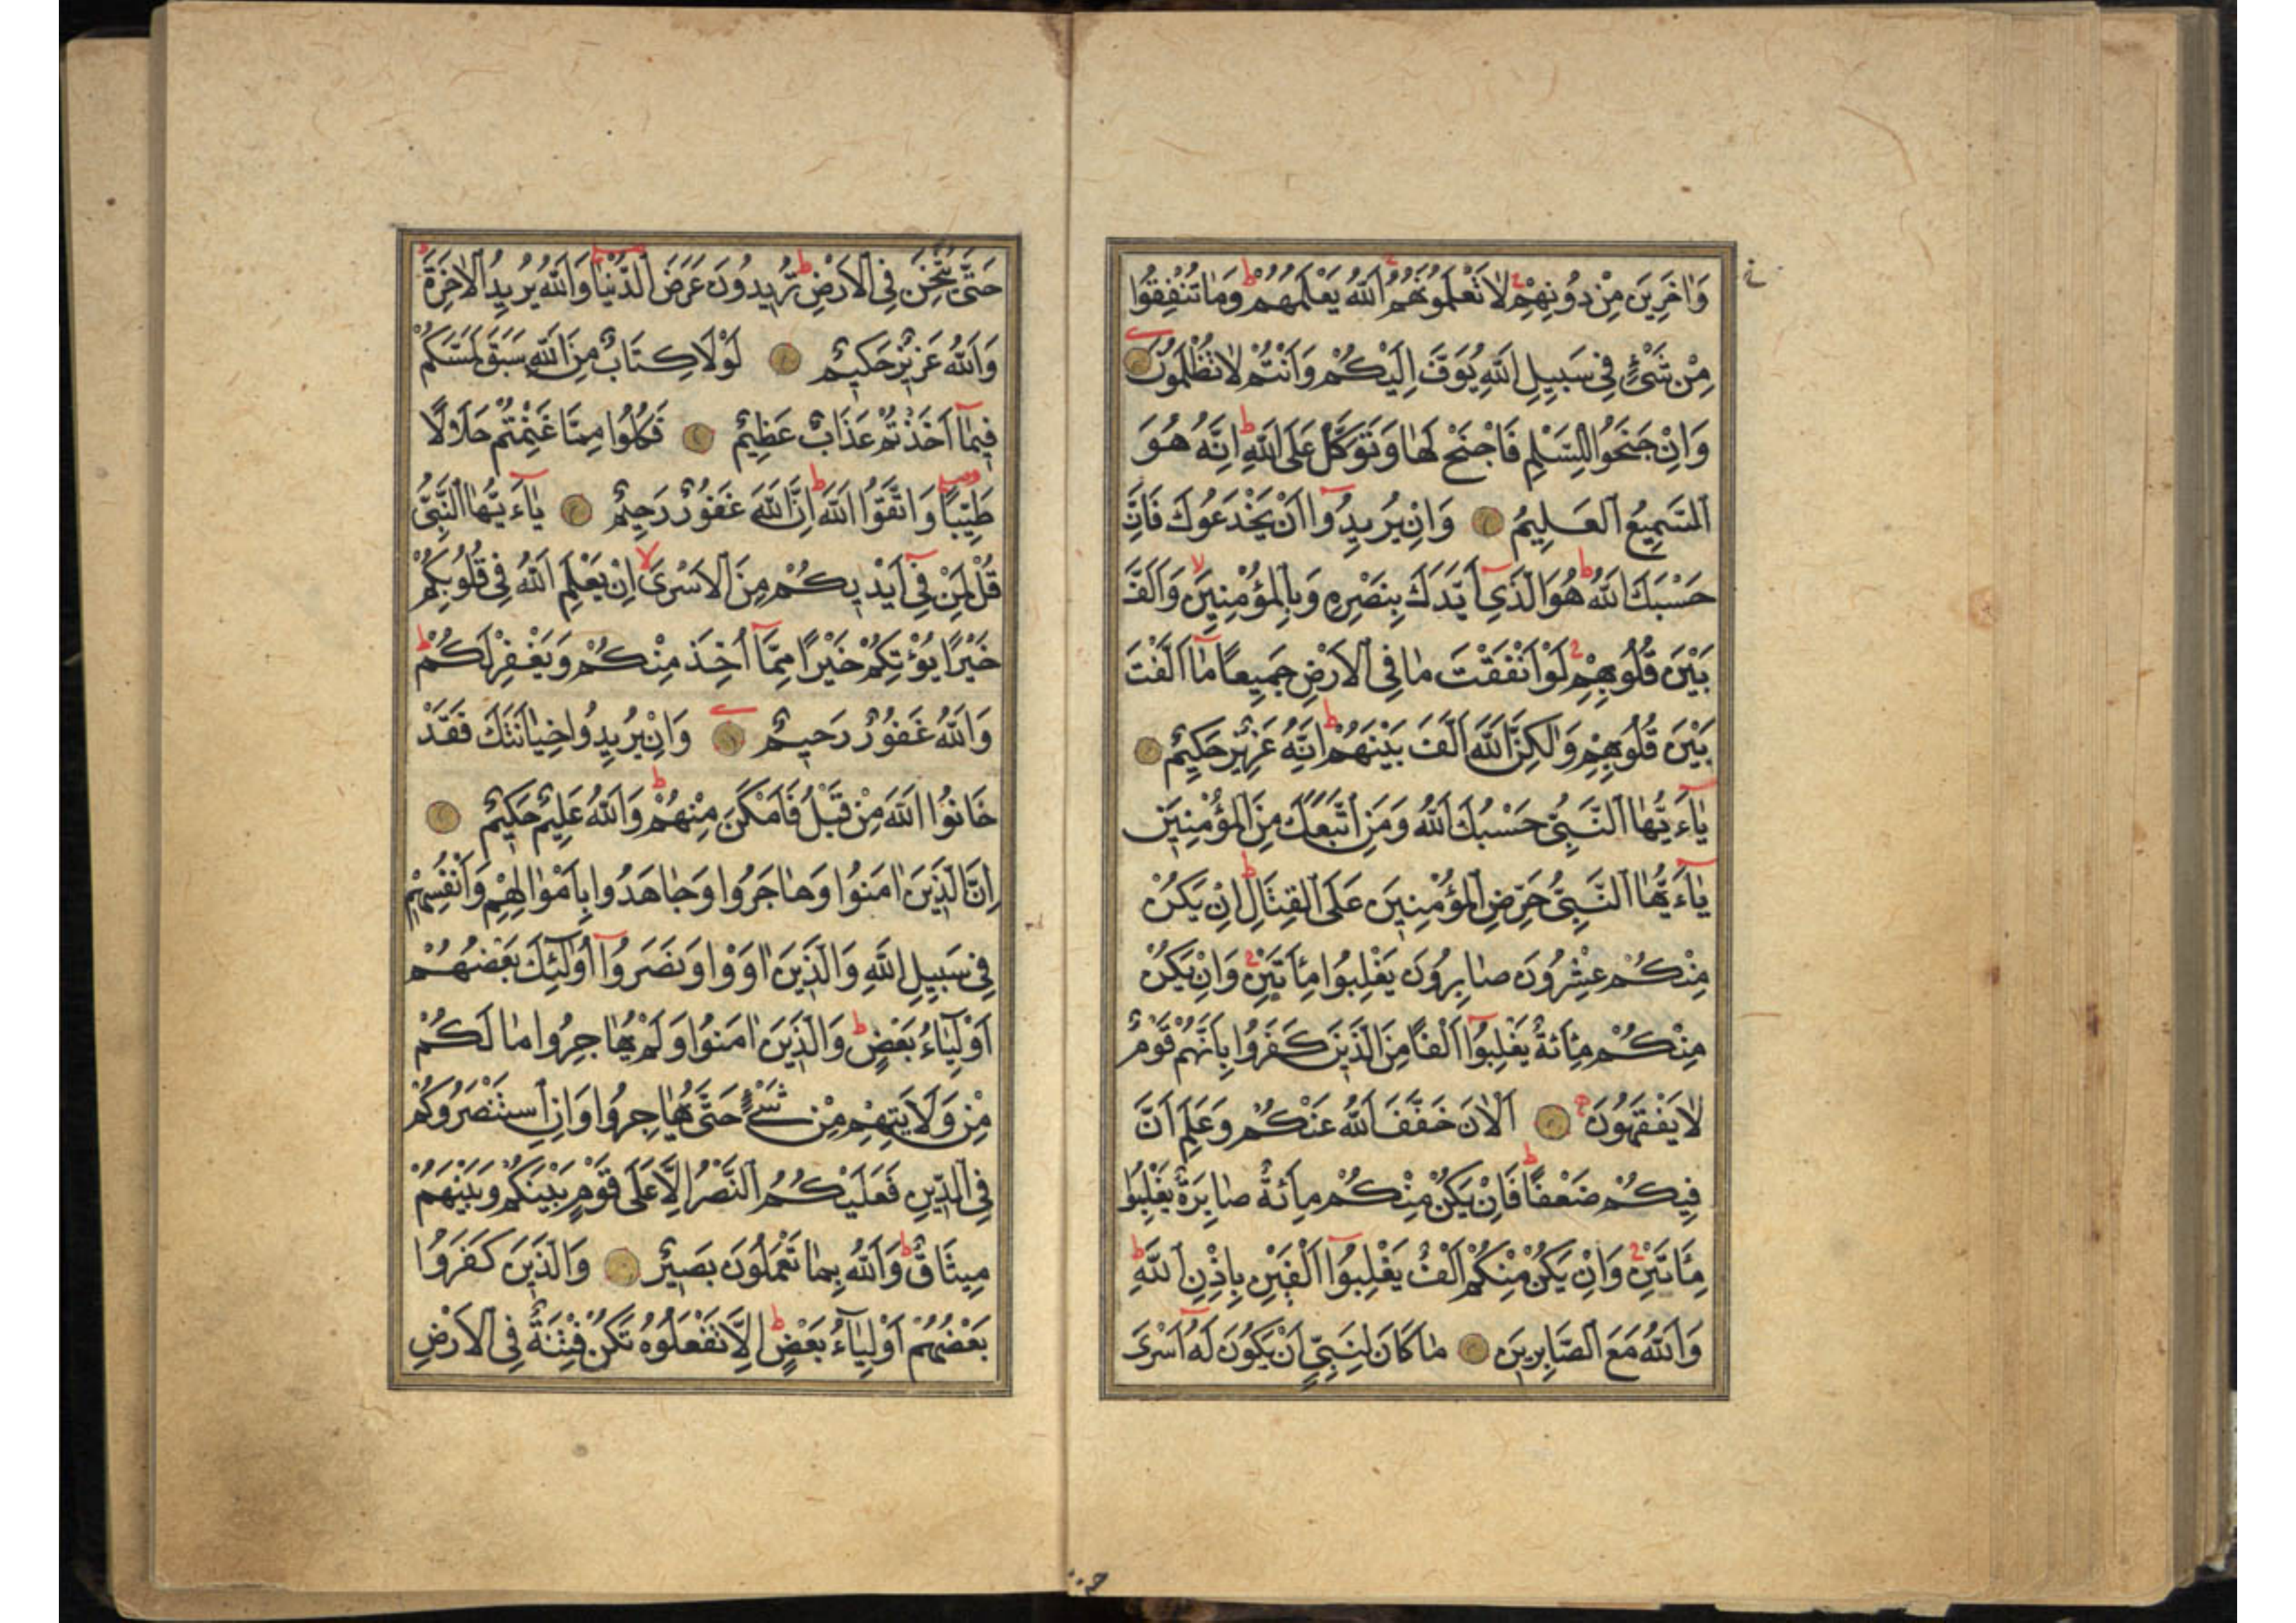 وَاٰخَرِينَ مِنْ دُونِهِمْ لَا تَعْلَمُونَهُمُ اَللّٰهُ يَعْلَمُهُمْ وَمَا تُنْفِقُوا
مِنْ شَىْءٍ فِى سَبِيلِ اللّٰهِ يُوَفَّ اِلَيْكُمْ وَاَنْتُمْ لَا تُظْلَمُونَ
وَاِنْ جَنَحُوا لِلسَّلْمِ فَاجْنَحْ لَهَا وَتَوَكَّلْ عَلَى اللّٰهِ اِنَّهُ هُوَ
اَلسَّمِيعُ الْعَلِيمُ وَاِنْ يُرِيدُوا اَنْ يَخْدَعُوكَ فَاِنَّ
حَسْبَكَ اللّٰهُ هُوَ الَّذِى اَيَّدَكَ بِنَصْرِهِ وَبِالْمُؤْمِنِينَ وَاَلَّفَ
بَيْنَ قُلُوبِهِمْ لَوْ اَنْفَقْتَ مَا فِى الْاَرْضِ جَمِيعًا مَا اَلَّفْتَ
بَيْنَ قُلُوبِهِمْ وَلٰكِنَّ اللّٰهَ اَلَّفَ بَيْنَهُمْ اِنَّهُ عَزِيزٌ حَكِيمٌ
يَاءَيُّهَا النَّبِىُّ حَسْبُكَ اللّٰهُ وَمَنِ اتَّبَعَكَ مِنَ الْمُؤْمِنِينَ
يَاءَيُّهَا النَّبِىُّ حَرِّضِ الْمُؤْمِنِينَ عَلَى الْقِتَالِ اِنْ يَكُنْ
مِنْكُمْ عِشْرُونَ صَابِرُونَ يَغْلِبُوا مِاَتَيْنِ وَاِنْ يَكُنْ
مِنْكُمْ مِائَةٌ يَغْلِبُوا اَلْفًا مِنَ الَّذِينَ كَفَرُوا بِاَنَّهُمْ قَوْمٌ
لَا يَفْقَهُونَ اَلْاٰنَ خَفَّفَ اللّٰهُ عَنْكُمْ وَعَلِمَ اَنَّ
فِيكُمْ ضَعْفًا فَاِنْ يَكُنْ مِنْكُمْ مِائَةٌ صَابِرَةٌ يَغْلِبُوا
مِاَتَيْنِ وَاِنْ يَكُنْ مِنْكُمْ اَلْفٌ يَغْلِبُوا اَلْفَيْنِ بِاِذْنِ اللّٰهِ
وَاللّٰهُ مَعَ الصَّابِرِينَ مَا كَانَ لِنَبِىٍّ اَنْ يَكُونَ لَهُ اَسْرَى
حَتَّى يُثْخِنَ فِى الْاَرْضِ تُرِيدُونَ عَرَضَ الدُّنْيَا وَاللّٰهُ يُرِيدُ الْاٰخِرَةَ
وَاللّٰهُ عَزِيزٌ حَكِيمٌ لَوْلَا كِتَابٌ مِنَ اللّٰهِ سَبَقَ لَمَسَّكُمْ
فِيمَا اَخَذْتُمْ عَذَابٌ عَظِيمٌ فَكُلُوا مِمَّا غَنِمْتُمْ حَلَالًا
طَيِّبًا وَاتَّقُوا اللّٰهَ اِنَّ اللّٰهَ غَفُورٌ رَحِيمٌ يَاءَيُّهَا النَّبِىُّ
قُلْ لِمَنْ فِى اَيْدِيكُمْ مِنَ الْاَسْرَى اِنْ يَعْلَمِ اللّٰهُ فِى قُلُوبِكُمْ
خَيْرًا يُؤْتِكُمْ خَيْرًا مِمَّا اُخِذَ مِنْكُمْ وَيَغْفِرْ لَكُمْ
وَاللّٰهُ غَفُورٌ رَحِيمٌ وَاِنْ يُرِيدُوا خِيَانَتَكَ فَقَدْ
خَانُوا اللّٰهَ مِنْ قَبْلُ فَاَمْكَنَ مِنْهُمْ وَاللّٰهُ عَلِيمٌ حَكِيمٌ
اِنَّ الَّذِينَ اٰمَنُوا وَهَاجَرُوا وَجَاهَدُوا بِاَمْوَالِهِمْ وَاَنْفُسِهِمْ
فِى سَبِيلِ اللّٰهِ وَالَّذِينَ اٰوَوْا وَنَصَرُوا اُولٰئِكَ بَعْضُهُمْ
اَوْلِيَاءُ بَعْضٍ وَالَّذِينَ اٰمَنُوا وَلَمْ يُهَاجِرُوا مَا لَكُمْ
مِنْ وَلَايَتِهِمْ مِنْ شَىْءٍ حَتَّى يُهَاجِرُوا وَاِنِ اسْتَنْصَرُوكُمْ
فِى الدِّينِ فَعَلَيْكُمُ النَّصْرُ اِلَّا عَلَى قَوْمٍ بَيْنَكُمْ وَبَيْنَهُمْ
مِيثَاقٌ وَاللّٰهُ بِمَا تَعْمَلُونَ بَصِيرٌ وَالَّذِينَ كَفَرُوا
بَعْضُهُمْ اَوْلِيَاءُ بَعْضٍ اِلَّا تَفْعَلُوهُ تَكُنْ فِتْنَةٌ فِى الْاَرْضِ